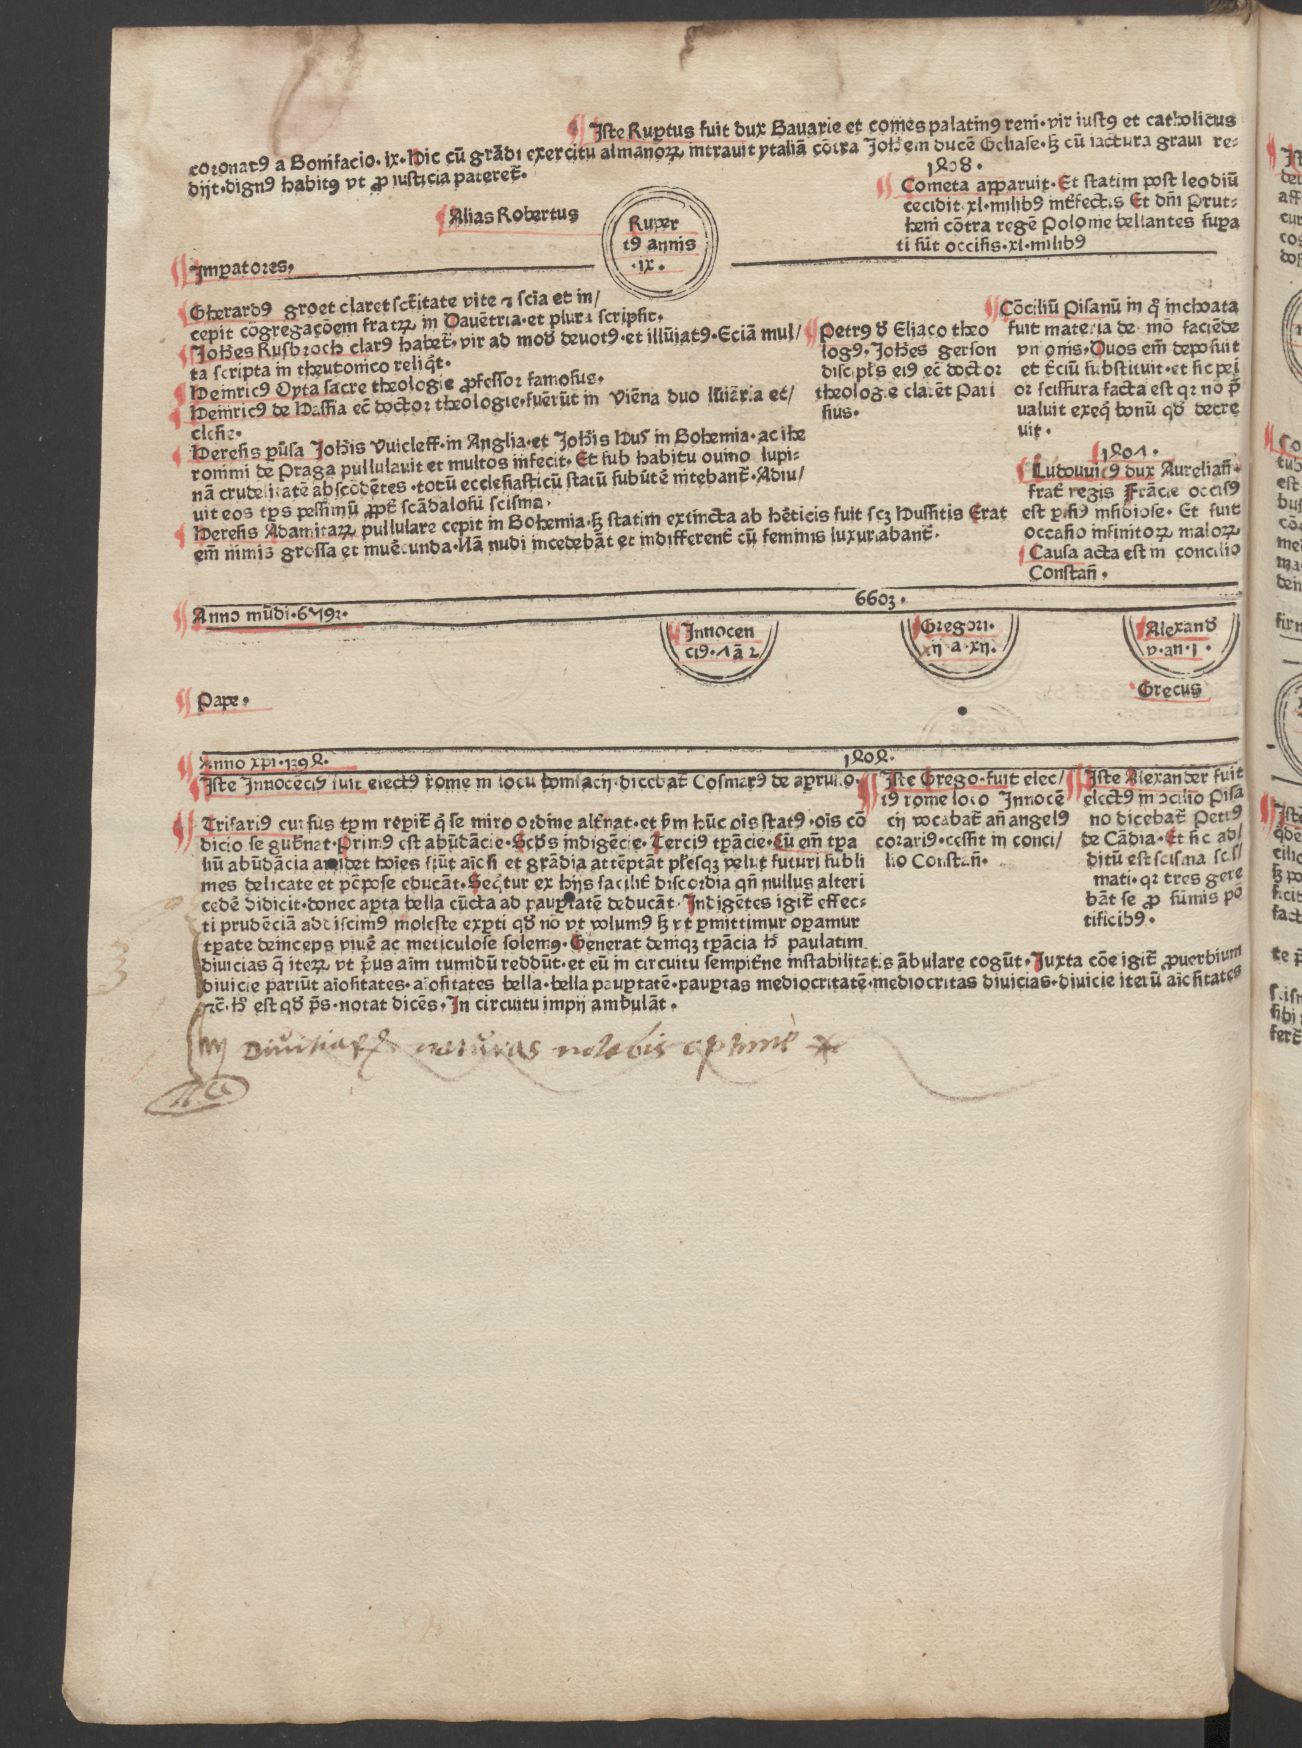 Iste Ruꝑtus fuit dux Bavarie et comes palatinꝰ reni·vir iustꝰ et catholicus
coronatꝰ a Bonifacio·ix·Hic cū grādi exercitu almanoꝝ intravit ytaliā cōtra Joħem ducē Geliase·ꝫ cū iactura gravi re⸗
dijt·dignꝰ habitꝰ vt ꝓ iusticia pateret᷑·
1408·
Cometa apparuit·Et statim post leodiū
cecidit·xl·milibꝰ int᷑fectis Et dn̄i Prut⸗
heni cōtra regē Polonie bellantes supa
ti sūt occisis·xl·milibꝰ
Alias Robertus
Ruper
tꝰ annis
·ix·
Imꝑatores·
Gherardꝰ groet claret sct̄itate vite ⁊ scīa et in/
cepit cōgregaçōem fratꝝ in Davētria·et plura scripsit·
Joħes Rusbroch clarꝰ habet᷑·vir ad modū devotꝰ·et illūiatꝰ·Eciā mul/
ta scripta in theutonico reliq̇t·
Heinricꝰ Oyta sacre theologie ꝓfessor famosus·
Heinricꝰ de Hassia ec̄ doctor theologie·fuerūt in viēna duo lūiaria et/
clesie·
Heresis pūsa Joħis Vuicleff·in Anglia·et Joħis Hus in Bohemia·ac ihe
ronimi de Praga pullulavit et multos infecit·Et sub habitu ovino lupi⸗
nā crudelitatē abscōdētes·totū ecclesiasticū statū subūtē nitebant᷑·Adiu/
vit eos tꝑs pessimū ꝓpt᷑ scādalosū scisma·
Heresis Adamitaꝝ pullulare cepit in Bohemia·ꝫ statim extincta ab hēticis fuit scꝫ Hussitis Erat
em̄ nimis grossa et muēcunda·Nā nudi incedebāt et indifferent᷑ cū feminis luxuriabant᷑·
Petrꝰ d̄ Eliaco theo
logꝰ·Joħes gerson
discipls̄ eiꝰ ec̄ doctor
theologie claret Pari
sius·
Cōciliū Pisanū in q̄ inchoata
fuit materia de mō faciēde
vnionis·Duos em̄ deposuit
et t᷑ciū substituit·et sic pei
or scissura facta est qꝛ nō p̄
ualuit exeq̄ bonū qd̄ decre
vit·
1407·
Ludovicꝰ dux Aurelian̄·
frat᷑ regis Frācie occisꝰ
est ꝑ sūi insidiose·Et fuit
occasio infinitoꝝ maloꝝ
Causa acta est in concilio
Constan̄·
Anno mūdi·6593·
6603·
Innocen
ciꝰ·7 ā 2
Gregori·
xij a·xij·
Alexand̄
v·an·1·
Grecus
Pape·
Anno xp̄i·1394·
1404·
Iste Innocēciꝰ fuit electꝰ rome in locū bonifacij·dicebat᷑ Cosmatꝰ de aprutio·
Iste Grego·fuit elec/
tꝰ rome loco Innocē
cij vocabat᷑ an̄ angelꝰ
corariꝰ·cessit in conci/
lio Constan̄·
Iste Alexander fuit
electꝰ in ɔcilio Pisa
no dicebat᷑ Petrꝰ
de Cādia·Et sic ad/
ditū est scisma scis/
mati·qꝛ tres gere
bāt se ꝓ sūmis pō
tificibꝰ·
Trifariꝰ cursus tꝑm reꝑit᷑ q̄ se miro ordine alt᷑nat·et ẜm hūc ois̄ statꝰ·ois̄ cō
dicio se gub᷑nat·Primꝰ est abūdācie·Scd̄s indigēcie·Terciꝰ tꝑācie·Cū em̄ tꝑa
liū abūdācia arridet hoīes fiūt aīcsi et grādia attēptāt pl᷑esqꝫ velut futuri subli
mes delicate et pōpose educāt·Seq̄tur ex hijs facilit᷑ discordia qn̄ nullus alteri
cedē didicit·donec aꝑta bella cūcta ad pauꝑtatē deducāt·Indigētes igit᷑ effec⸗
ti prudēciā addiscimꝰ moleste exꝑti qd̄ nō vt volumꝰ ꝫ vt ꝑmittimur oꝑamur
tꝑate deinceps vivē ac meticulose solemꝰ·Generat deniqꝫ tꝑācia ħ paulatim
divicias q̄ iteꝝ vt p̄us aīm tumidū reddūt·et eū in circuitu sempit᷑ne instabilitatis ābulare cogūt·Juxta cōe igit᷑ ꝓverbium
divicie pariūt aīositates·aīositates bella·bella pauꝑtatē·pauꝑtas mediocritatē·mediocritas divicias·divicie iterū aīcsitates
⁊c̄·ħ est qd̄ p̄s·notat dicēs·In circuitu impij ambulāt·
Divitiaꝝ naturas notabis optime